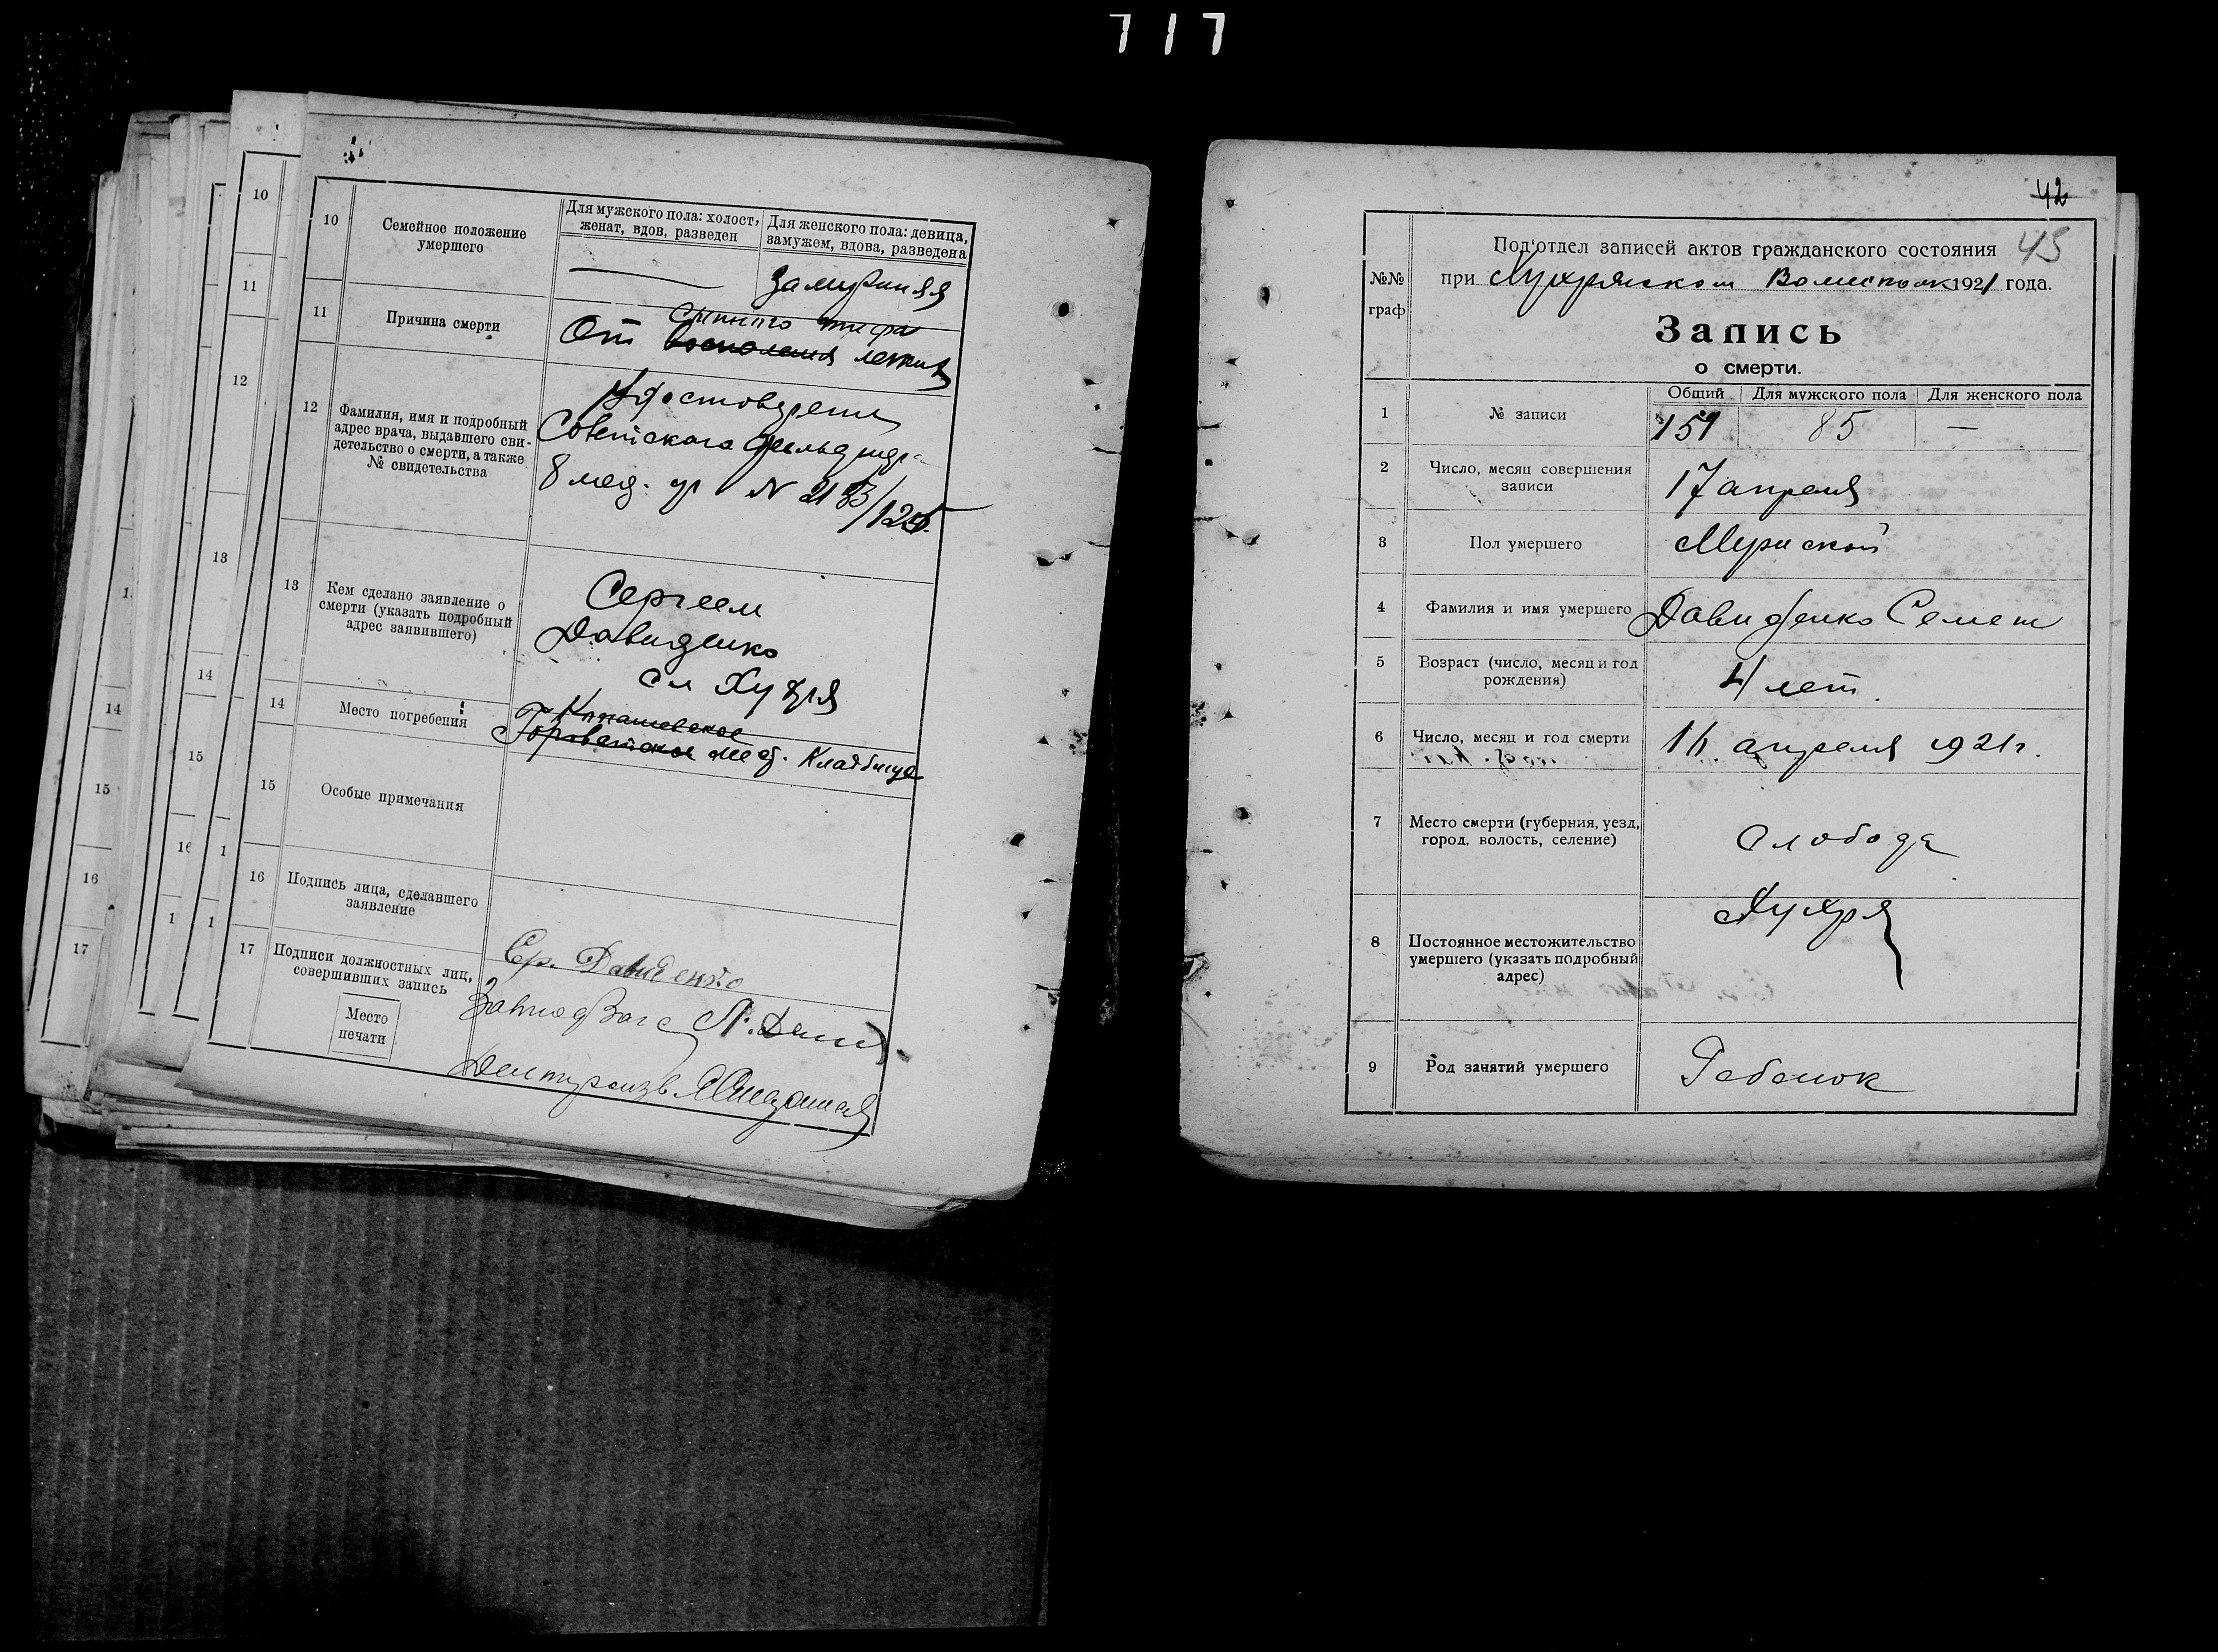 717
10
Семейное положение
умершего
Для мужского пола: холост,
женат, вдов, разведен
Для женского пола: девица,
замужем, вдова, разведена
замужняя
11
Причина смерти
сыпного тифа
От воспаления легких
12
Фамилия, имя и подробный
адрес врача, выдавшего сви-
детельство о смерти, а также
№ свидетельства
Советского
8 мед. N
13
Кем сделано заявление о
смерти (указать подробный
адрес заявившего)
Сергеем
Давиденко
сл Хухря
14
Место погребения
мест. Кладбище
15
Особые примечания
16
Подпись лица, сделавшего
заявление
Ср. Давиденко
17
Подписи должностных лиц,
совершивших запись
Место
печати
10
11
12
13
14
15
16
17
42
45
№№
граф
Подотдел записей актов гражданского состояния
при Хухрянском 1921 года.
Запись
о смерти.
1
№ записи
Общий
Для мужского пола
Для женского пола
151
85
—
2
Число, месяц совершения
записи
17 апреля
3
Пол умершего
Мужской
4
Фамилия и имя умершего
Давиденко Семен
5
Возраст (число, месяц и год
рождения)
4 лет.
6
Число, месяц и год смерти
16 апреля 1921 г.
7
Место смерти (губерния, уезд,
город, волость, селение)
Слобода
Хухря
8
Постоянное местожительство
умершего (указать подробный
адрес)
9
Род занятий умершего
Ребенок